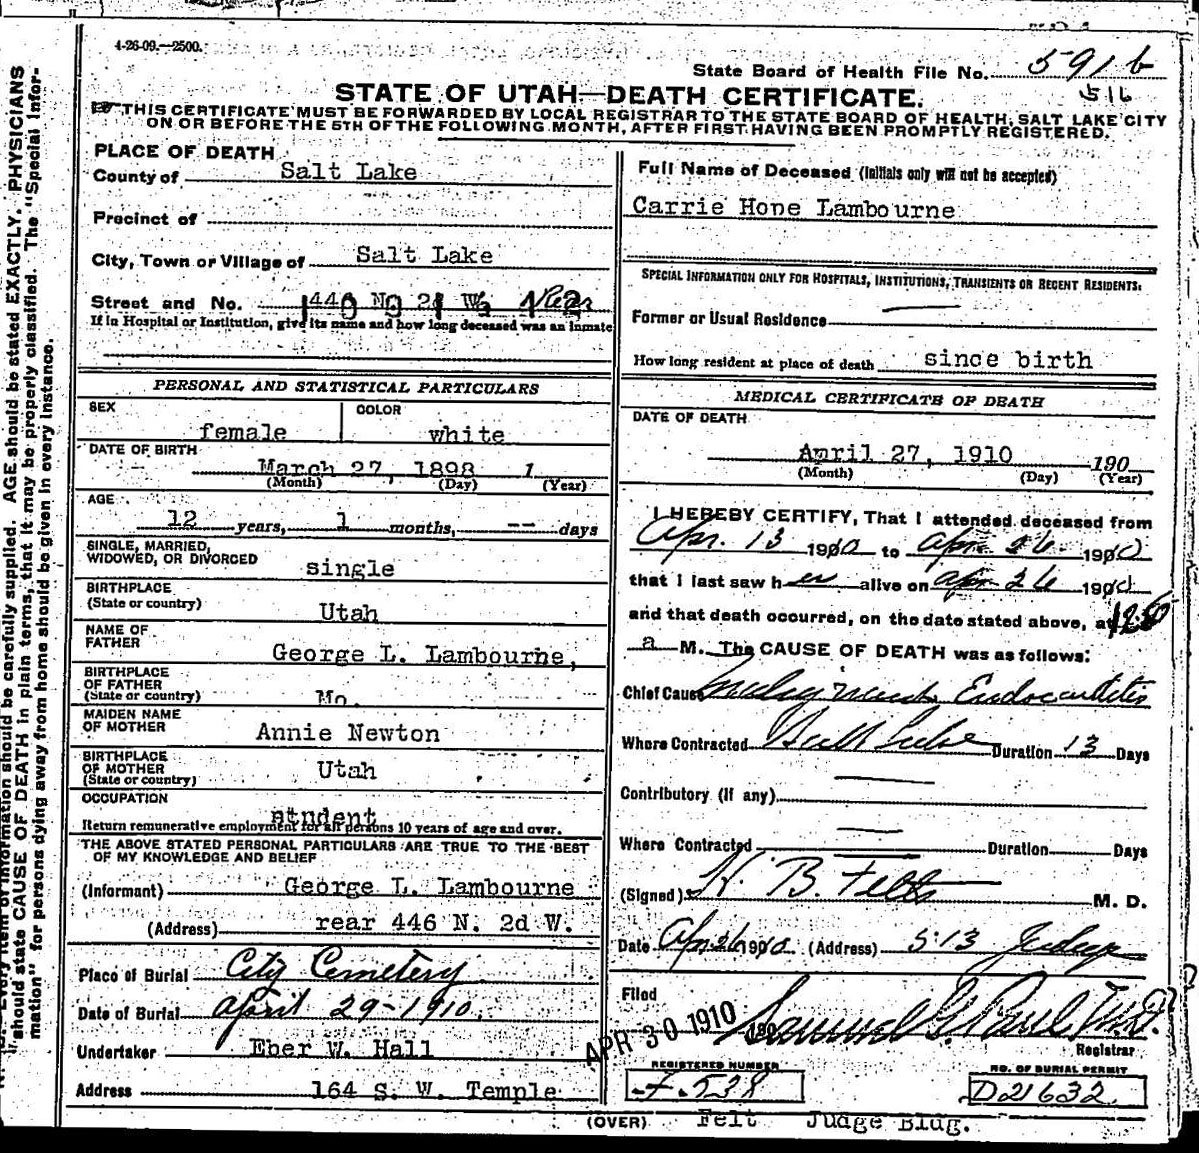 4-26-09.—2500.
State Board of Health File No. 5916
516
STATE OF UTAH—DEATH CERTIFICATE.
THIS CERTIFICATE MUST BE FORWARDED BY LOCAL REGISTRAR TO THE STATE BOARD OF HEALTH, SALT LAKE CITY
ON OR BEFORE THE 5TH OF THE FOLLOWING MONTH, AFTER FIRST HAVING BEEN PROMPTLY REGISTERED.
PLACE OF DEATH
County of Salt Lake
Precinct of
City, Town or Village of Salt Lake
Street and No. 446 N 2d W. Rear
If in Hospital or Institution, give its name and how long deceased was an inmate
PERSONAL AND STATISTICAL PARTICULARS
SEX female
COLOR white
DATE OF BIRTH
March 27, 1898 1
(Month) (Day) (Year)
AGE
12 years, 1 months, -- days
SINGLE, MARRIED,
WIDOWED, OR DIVORCED single
BIRTHPLACE
(State or country) Utah
NAME OF
FATHER George L. Lambourne,
BIRTHPLACE
OF FATHER
(State or country) Mo.
MAIDEN NAME
OF MOTHER Annie Newton
BIRTHPLACE
OF MOTHER
(State or country) Utah
OCCUPATION student
Return remunerative employment for all persons 10 years of age and over.
THE ABOVE STATED PERSONAL PARTICULARS ARE TRUE TO THE BEST
OF MY KNOWLEDGE AND BELIEF
(Informant) George L. Lambourne
(Address) rear 446 N. 2d W.
Place of Burial City Cemetery
Date of Burial April 29-1910.
Undertaker Eber W. Hall
Address 164 S. W. Temple
Full Name of Deceased (Initials only will not be accepted)
Carrie Hone Lambourne
SPECIAL INFORMATION ONLY FOR HOSPITALS, INSTITUTIONS, TRANSIENTS OR RECENT RESIDENTS:
Former or Usual Residence
How long resident at place of death since birth
MEDICAL CERTIFICATE OF DEATH
DATE OF DEATH
April 27, 1910 190
(Month) (Day) (Year)
I HEREBY CERTIFY, That I attended deceased from
Apr. 13 1910 to Apr 26 1910
that I last saw her alive on Apr 26 1910
and that death occurred, on the date stated above, at 12:50
a M. The CAUSE OF DEATH was as follows:
Chief Cause Malignant Endocarditis
Where Contracted Salt Lake Duration 13 Days
Contributory (if any)
Where Contracted Duration Days
(Signed) H. B. Felts M. D.
Date Apr 26 1910 (Address) 513 Judge
Filed APR 30 1910 190 Samuel G. Paul, M.D.
Registrar
REGISTERED NUMBER
F. 538
NO. OF BURIAL PERMIT
D21632
(OVER) Felt Judge Bldg.
Every item of information should be carefully supplied. AGE should be stated EXACTLY. PHYSICIANS
should state CAUSE OF DEATH in plain terms, that it may be properly classified. The "Special Infor-
mation" for persons dying away from home should be given in every instance.